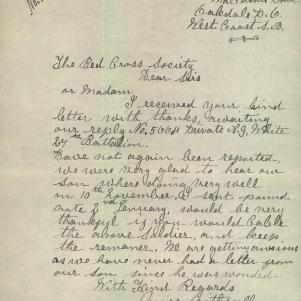 No.
Oakdale P.O.
West Coast S.A.
The Red Cross Society
Dear Sirs
or Madam,
I received your kind
letter with thanks, awaiting
our reply No. Private A.J. White
27th Battalion.
have not again been reported,
we were very glad to hear our
son where doing very well
on 10th November, I sent pound
note 2nd January, would be very
thankful if you would Cable
the above soldier, and keep
the remaner, We are getting anxious
as we have never had a letter from
our son since he was wonded.
With Kind Regards